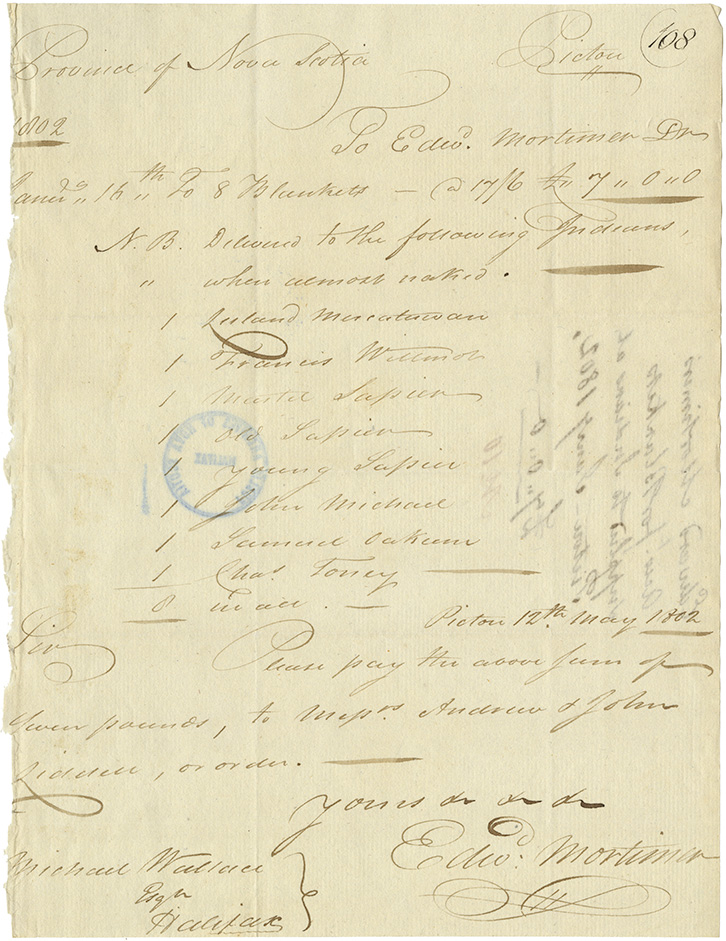 108
Province of Nova Scotia Pictou
1802
To Edwd. Mortimer Dr
Jany 16th To 8 Blankets — @ 17/6 £ 7 " 0 " 0
N.B. Delivered to the following Indians,
" when almost naked.
1
1 Francis Willmot
1 Martel Sapier
1 Old Sapier
1 Young Sapier
1 John Michael
1 Samuel Oakum
1 Chas. Toney
8 in all. —
Pictou 12th May 1802
Sir
Please pay the above sum of
Seven pounds, to Messrs. Andrew & John
Liddell, or order.
Yours &c &c &c
Edwd. Mortimer
Michael Wallace
Esqr
Halifax